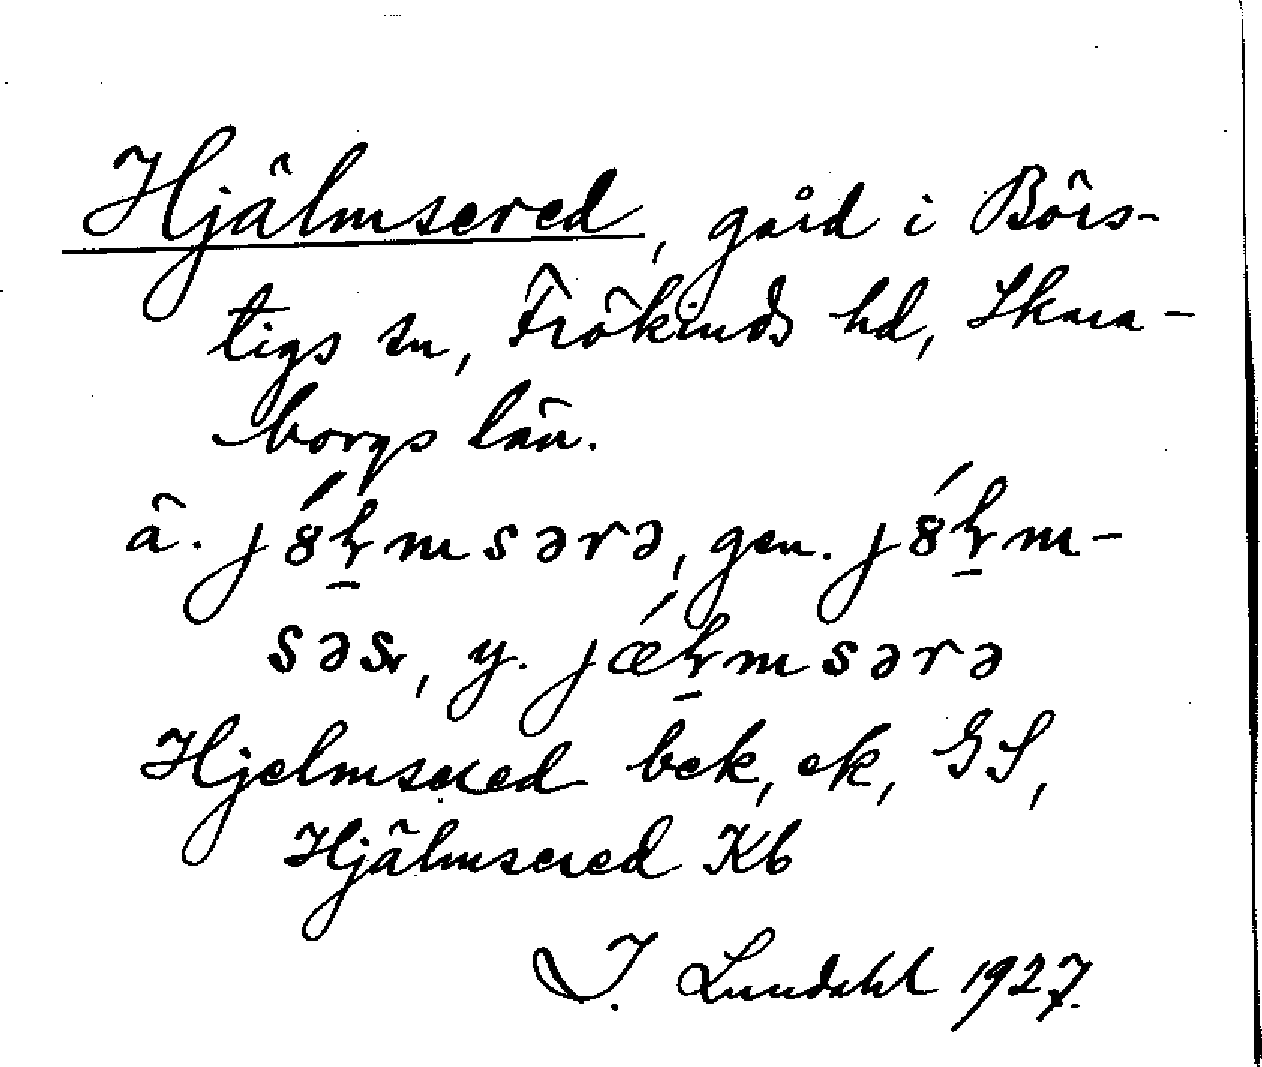 Hjälmsered, gård i Börs-
tigs sn, Frökinds hd, Skara-
borgs län.
ä. j8́ꞎmsərə, gen. j8́ꞎm-
səsr, y. jǽꞎmsərə
Hjelmsered bek, ek, GS,
Hjälmsered Kb
I. Lundahl 1927.